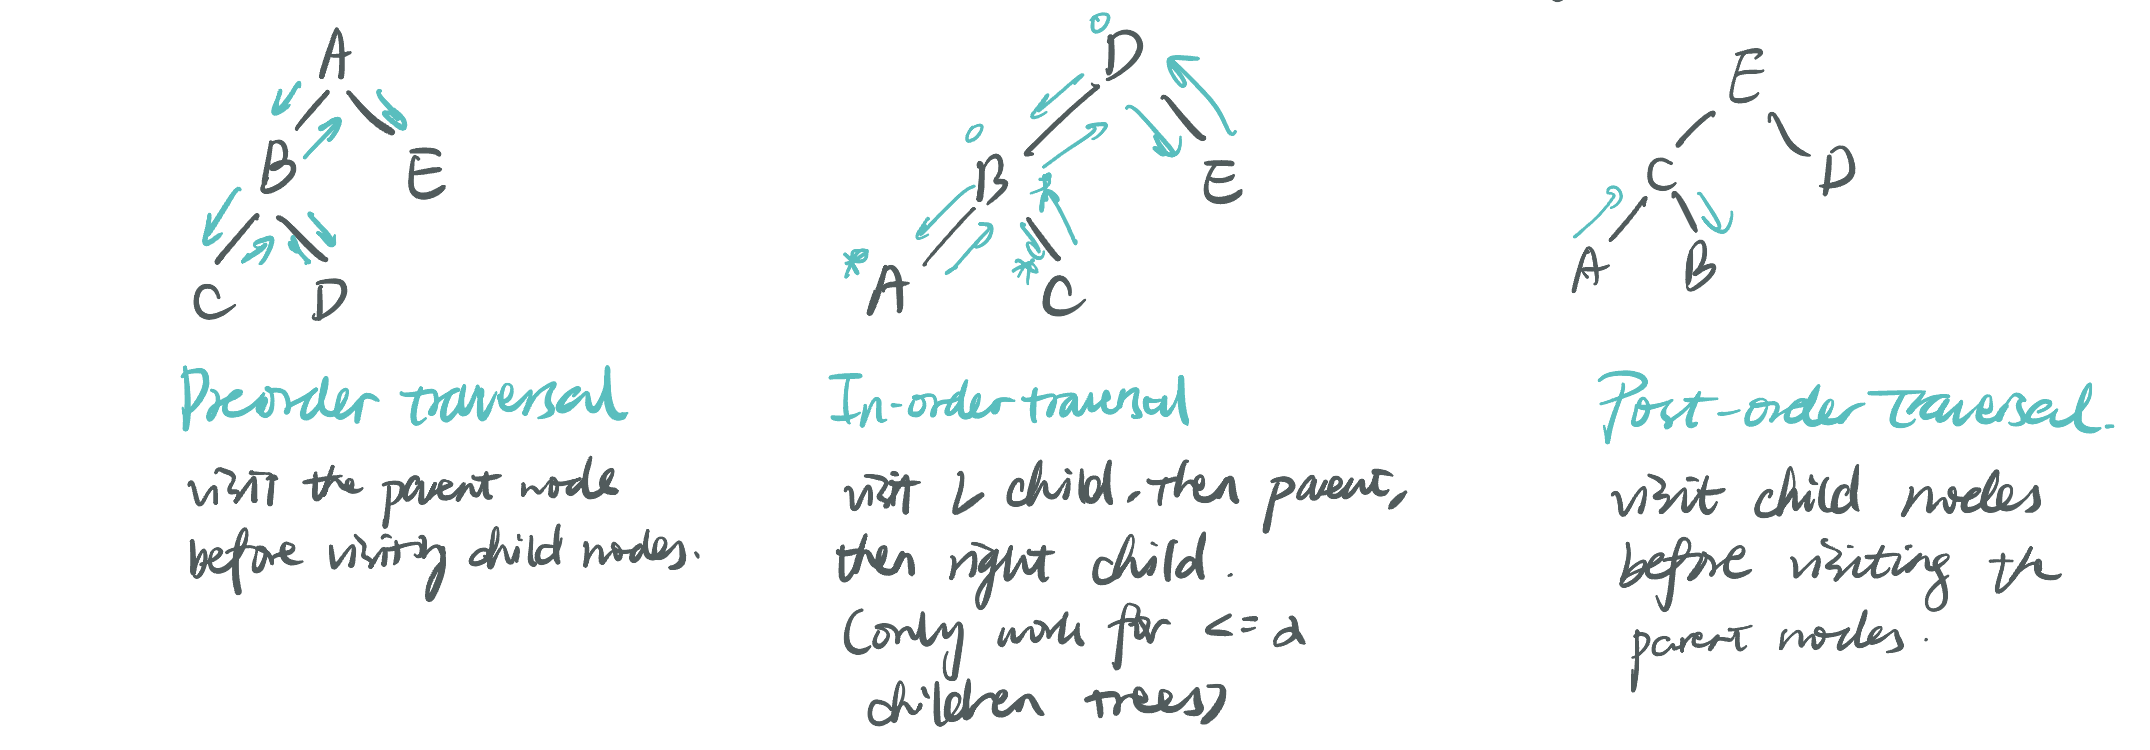 A
B
E
C
D
Preorder traversal
visit the parent node
before visiting child nodes.
D
B
E
A
C
In-order traversal
visit L child, then parent,
then right child.
(only work for <= 2
children trees)
E
C
D
A
B
Post-order traversal.
visit child nodes
before visiting the
parent nodes.